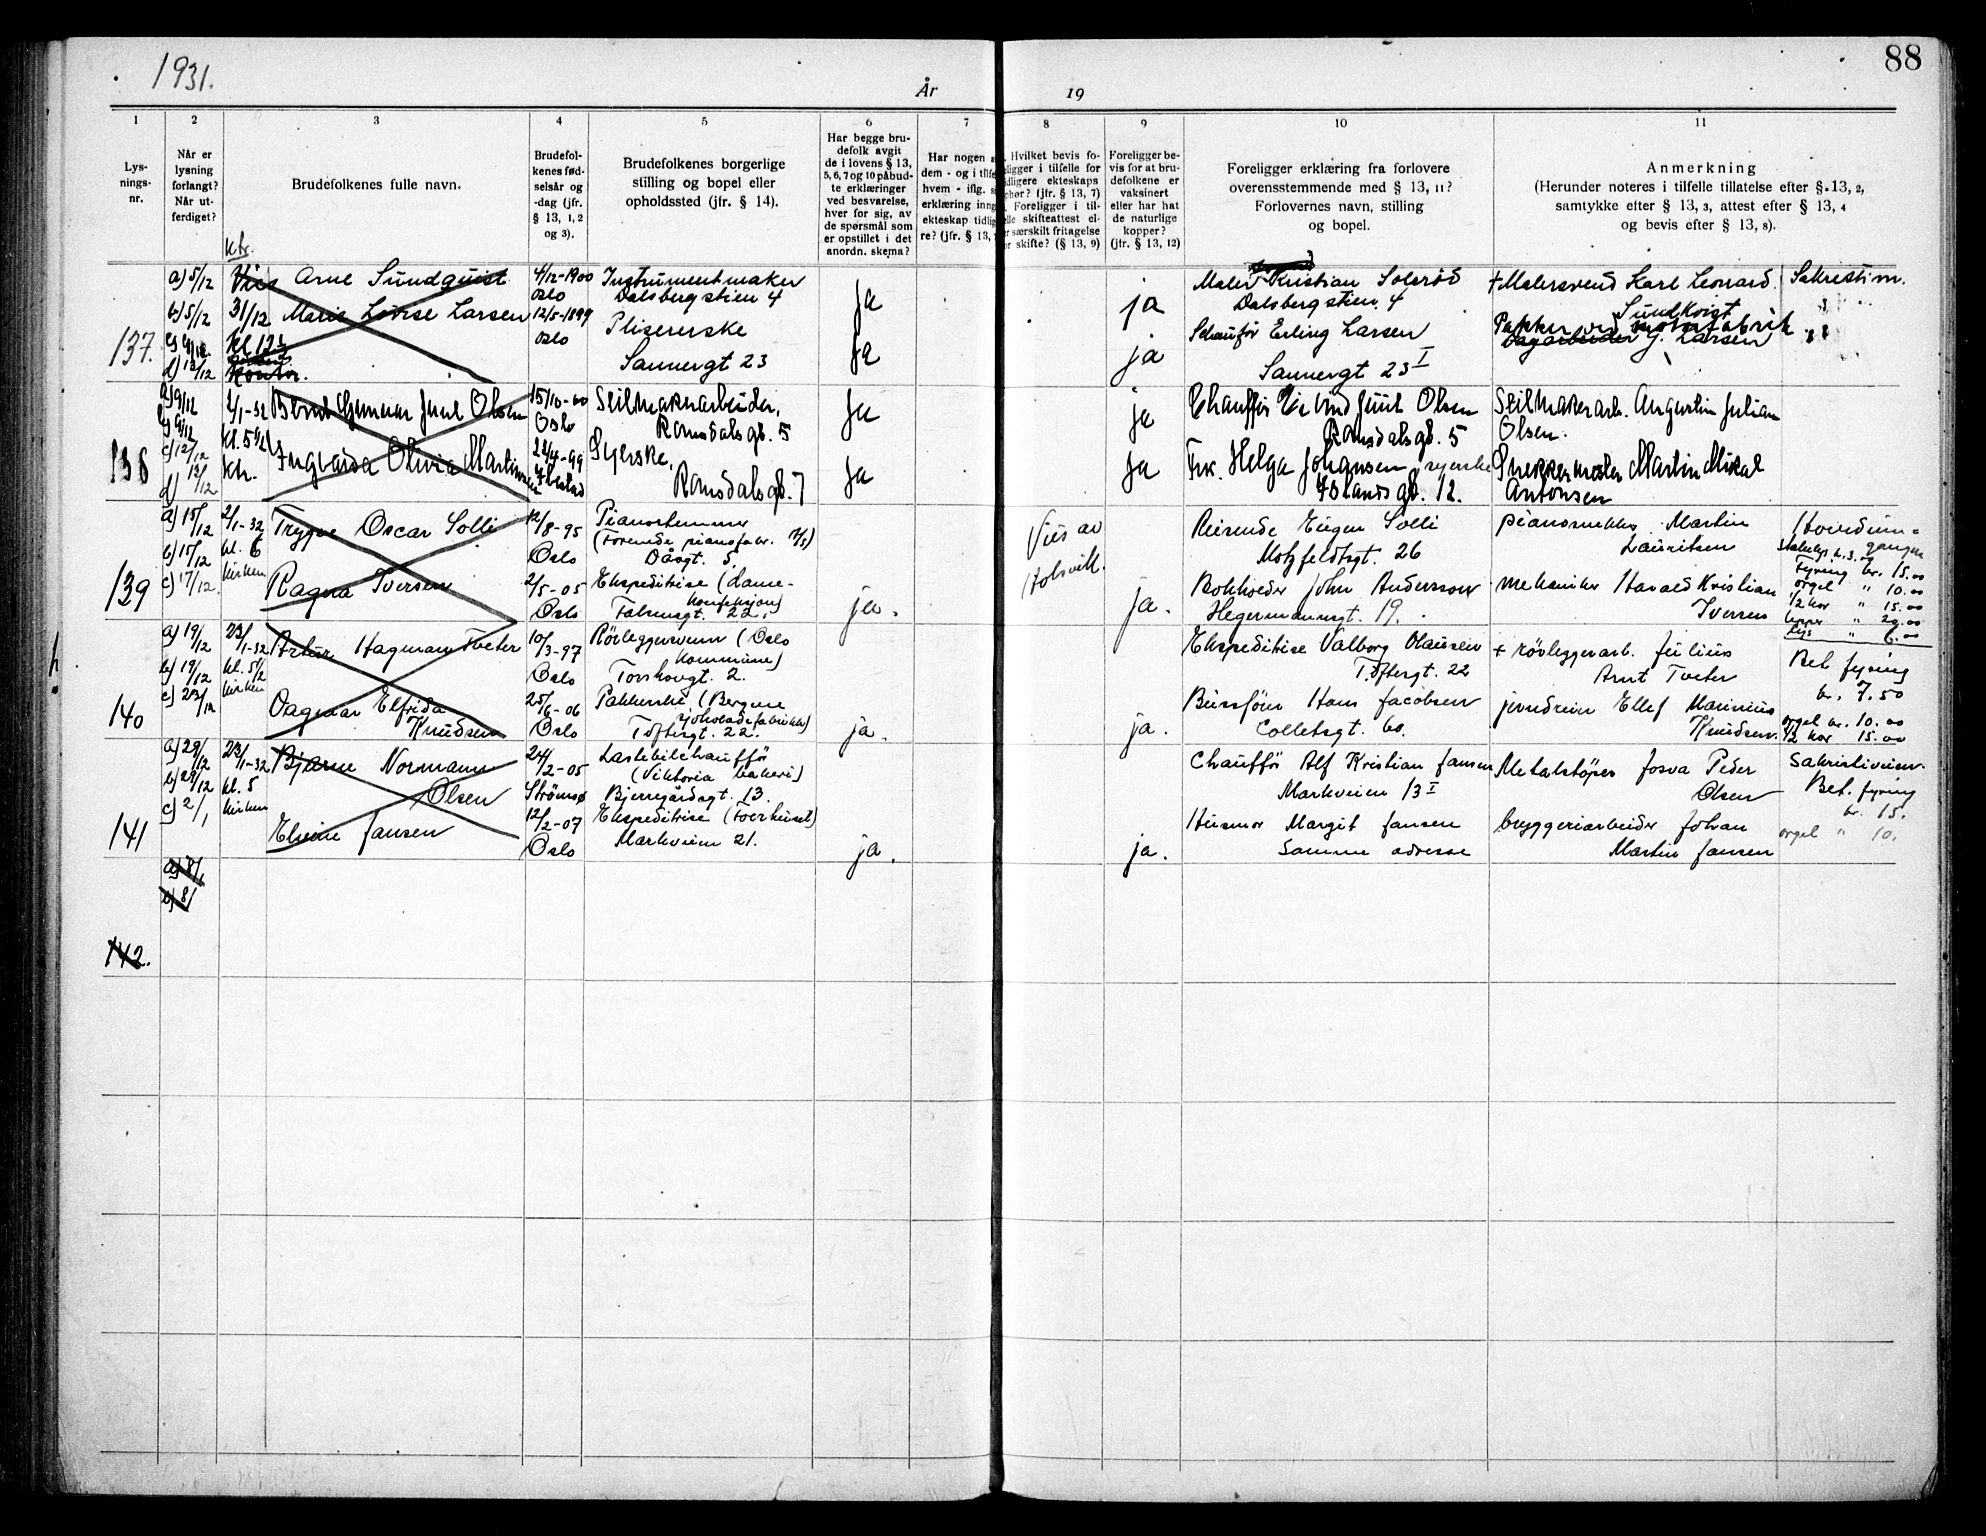 1931.
88
År
19
1
2
3
4
5
6
7
8
9
10
11
Lys-
nings-
nr.
Når er
lysning
forlangt?
Når ut-
ferdiget?
Brudefolkenes fulle navn.
Brudefol-
kenes fød-
selsår og
-dag (jfr.
§ 13, 1, 2
og 3).
Brudefolkenes borgerlige
stilling og bopel eller
opholdssted (jfr. § 14).
Har begge bru-
defolk avgit
de i lovens § 13,
5, 6, 7 og 10 påbud-
te erklæringer
ved besvarelse,
hver for sig, av
de spørsmål som
er opstillet i det
anordn. skema?
Har nogen
dem - og i tilfe
hvem - iflg.
erklæring inng
ekteskap tidlig
re? (jfr. § 13,
Hvilket bevis fo-
ligger i tilfelle for
dligere ekteskaps
phør? (jfr. § 13, 7)
Foreligger i til-
elle skifteattest el-
er særskilt fritagelse
or skifte? (§ 13, 9)
Foreligger be-
vis for at bru-
defolkene er
vaksinert
eller har hat
de naturlige
kopper?
(jfr. § 13, 12)
Foreligger erklæring fra forlovere
overensstemmende med § 13, 11?
Forlovernes navn, stilling
og bopel.
Anmerkning
(Herunder noteres i tilfelle tillatelse efter § 13, 2,
samtykke efter § 13, 3, attest efter § 13, 4
og bevis efter § 13, 8).
ktr.
137.
a) 5/12
b) 5/12
d) 12/12
31/12
Kontor.
Arne Sundquist
Marie Lovise Larsen
4/12-1900
Oslo
12/5-1899
Oslo
Instrumentmaker
Dalsbergstien 4
Plisererske
Sannergt 23
Ja
Ja
ja
ja
Maler Kristian Solerød
Dalsbergstien 4
Schauför Erling Larsen
Sannergt 23 I
+ Malersvend Karl Leonard
Sundkvist
Pakker ved motorfabrik
Dagarbeider J. Larsen
Sakrestim.
138
a) 9/12
b) 9/12
c) 12/12
d) 12/12
2/1-32
kl. 5½
ktr.
Bernt Gunnar Juul Olsen
Ingvarda Olivia Martinsen
15/10-00
Oslo
22/4-99
Seilmakerarbeider,
Romsdalsgt. 5
Syerske,
Romsdalsgt. 7
Ja
Ja
ja
Ja
Chauffør Eivind Juul Olsen
Romsdalsgt. 5
Frk. Helga Johansen syerske
Islandsgt. 12.
Seilmakerarb. Augustin Julian
Olsen.
Snekkermester Martin Mikal
Antonsen
139
a) 15/12
b) 15/12
c) 17/12.
2/1-32
kl. 6
kirken
Trygve Oscar Solli
Ragna Iversen
12/8-95
Oslo
2/5-05
Oslo
Pianostemmer
(Forende pianofabr. A/S)
Dåsgt. 5.
Ekspeditrise (Dame-
konfeksjon)
Falsensgt. 22.
ja.
Vies av
Holsvik.
ja.
Reisende Eugen Solli
Motzfeldtsgt. 26
Bokholder John Andersson
Hegermannsgt. 19.
pianosnekker Martin
Lauritsen
mekaniker Harald Kristian
Iversen
Hovedinn-
gangen
Fyring kr. 15.00
orgel " 10.00
1/2 kor " 15.00
tepper " 20.00
Lys " 6.00
140
a) 19/12
b) 19/12
c) 23/12
23/1-32
kl. 5½
kirken
Artur Hagman Tveter
Dagmar Elfrida
Knudsen
10/3-97
Oslo
25/6-06
Oslo
Rörleggersvenn (Oslo
Kommune)
Torshovgt. 2.
Pakkerske (Bergene
sjokoladefabrikk)
Toftesgt. 22.
ja.
ja.
Ekspeditrise Valborg Olaussen
Toftesgt. 22
Bussfører Hans Jacobsen
Colletsgt. 60.
+ rörleggerarb. Julius
Arnt Tveter
jerndreier Ellef Marinius
Knudsen.
Bet. fyring
kr. 7.50
orgel kr. 10.00
1/2 kor 15.00
141
a) 29/12
b) 29/12
c) 2/1
23/1-32
kl. 5
kirken
Bjarne Normann
Olsen
Elvine Jansen
24/2-05
Strömsø
12/2-07
Oslo
Lastebilchauffø
(Viktoria bakeri)
Bjerregårdsgt. 13.
Ekspeditrise (Foerhuset)
Markveien 21.
ja.
ja.
Chauffø Alf Kristian Jansen
Markveien 13 I
Husmor Margit Jansen
Samme adresse
Metalstøper Josva Peder
Olsen
bryggeriarbeider Johan
Martin Jansen
Sakristiveien
Bet. fyring
kr. 15.
orgel " 10.
a) 8/1
b) 8/1
142.